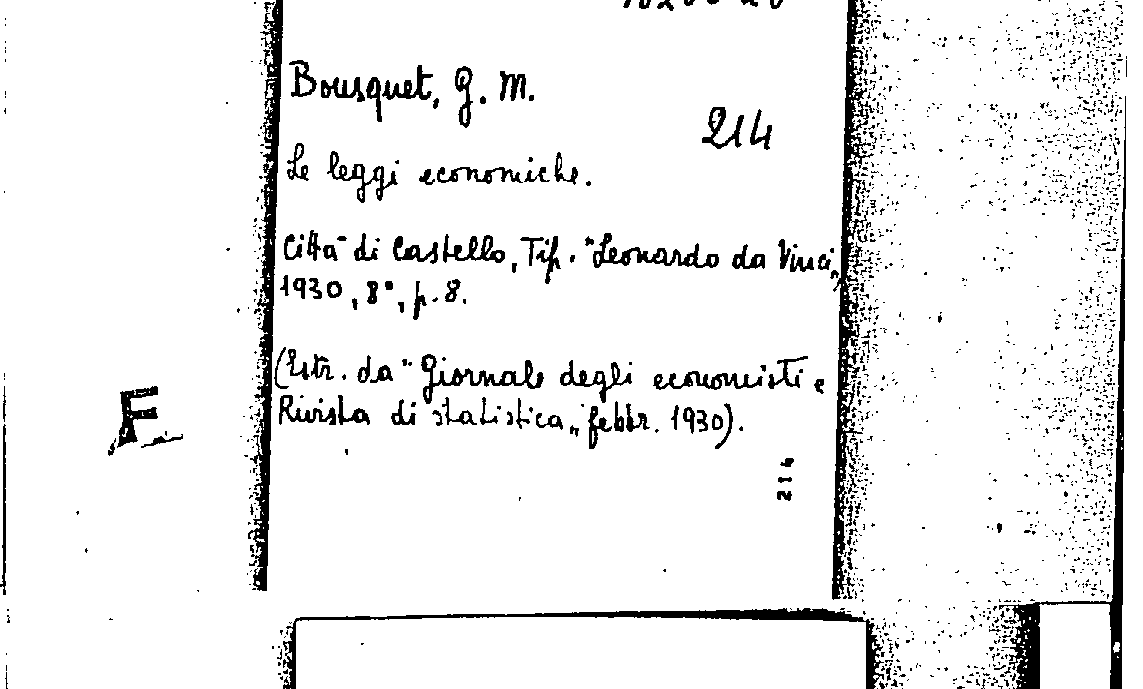 Bousquet, G. M.
214
Le leggi economiche.
Città di Castello, Tip. "Leonardo da Vinci„
1930, 8°, p. 8.
(Estr. da "Giornale degli economisti e
Rivista di statistica„ febbr. 1930).
214
F